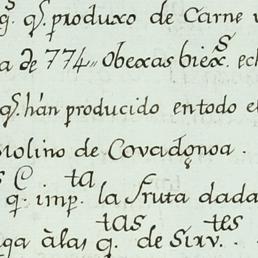 q.e q.s produxo de Carne
a de 774,, Obexas biex.s ech
q.s hán producido en todo el
Molino de Covadonga .
q.s imp.ta la Fruta dada
ga à las q.tas de Sirv.tes .